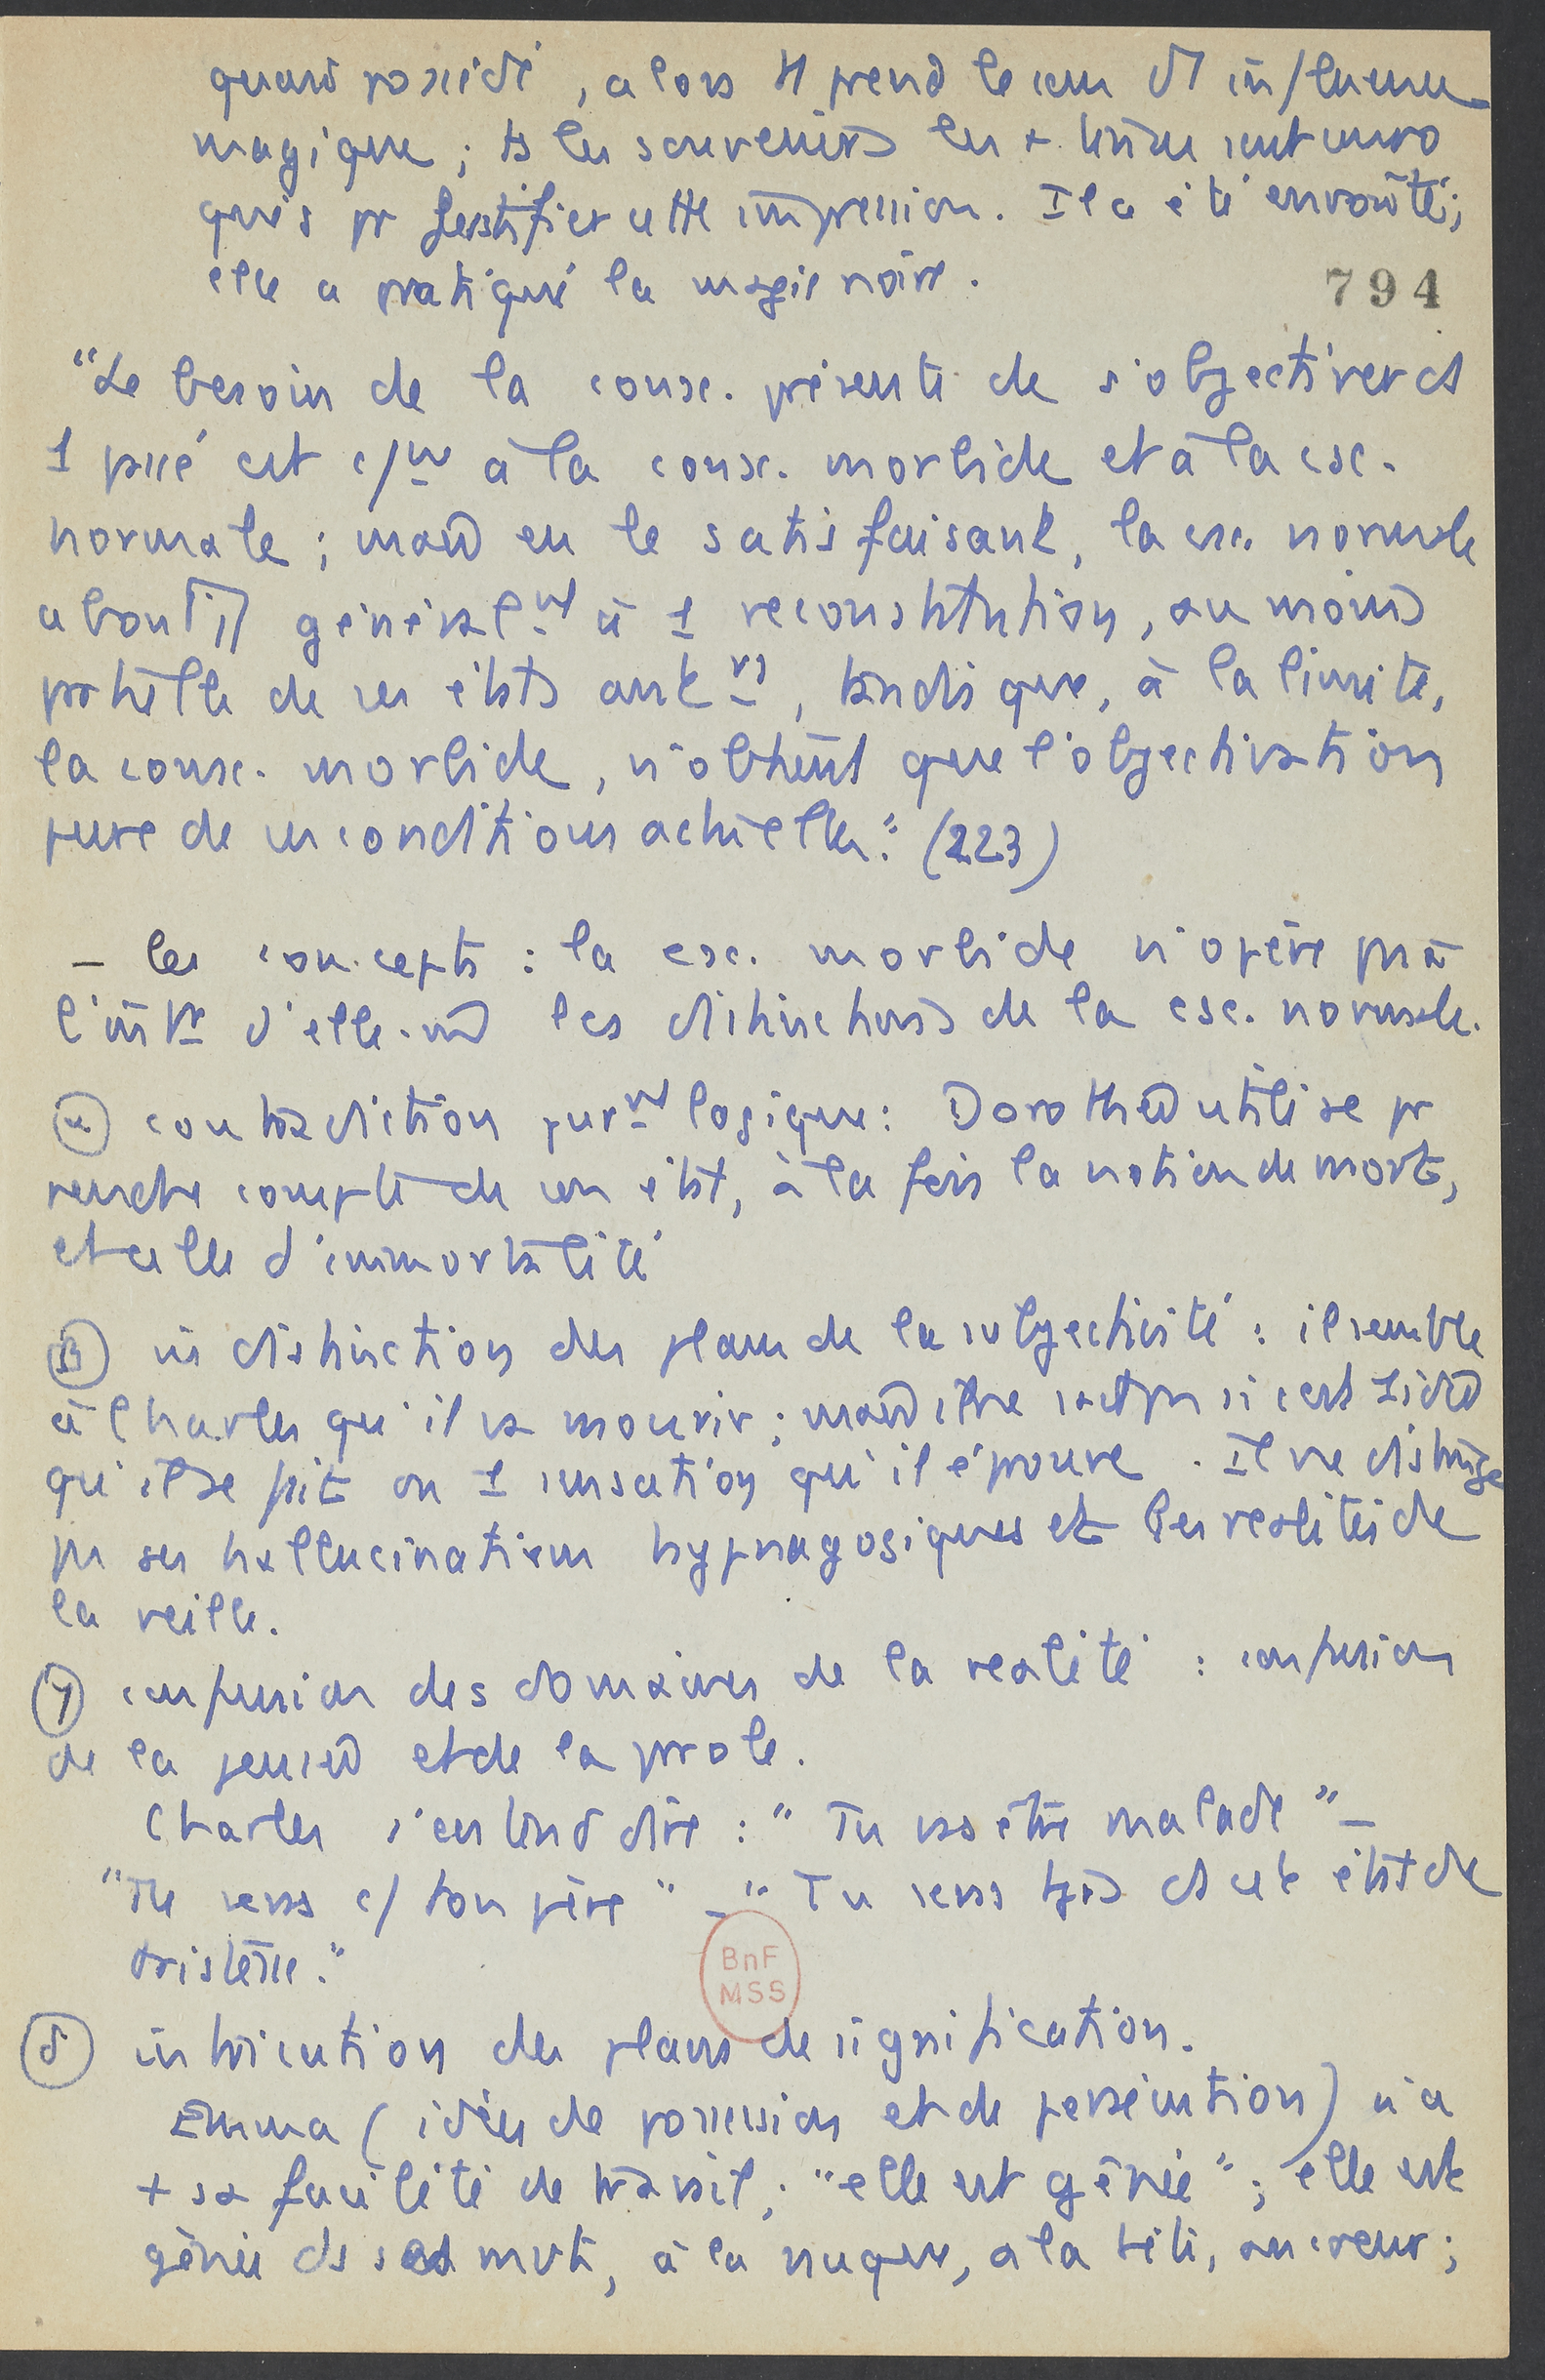 quand possédé, alors il prend le sens d'1 influence
magique ; ts les souvenirs les + limm sont invo
qués pr justifier cette impression. Il a été envoûté ;
elle a pratiqué la magie noire.
794
"Le besoin de la consc. présente de s'objectiver ds
1 passé est c/un à la consc. morbide et à la csc.
normale ; mais en le satisfaisant, la csc. normale
aboutit généralt à 1 reconstitution, au moins
partielle de ses états antrs, tandis que, à la limite,
la consc. morbide, n'obtient que l'objectivation
pure de ses conditions actuelles." (223)
– les concepts : la csc. morbide n'opère pas à
l'intr d'elle-m les distinctions de la csc. normale.
α contradiction purt logique : Dorothée utilise pr
rendre compte de son état, à la fois la notion de mort,
et celle d'immortalité
β indistinction des plans de la subjectivité : il semble
à Charles qu'il va mourir ; mais il ne sait pas si c'est 1 idée
qu'il se fait ou 1 sensation qu'il éprouve. Il ne distingue
pas ses hallucinations hypnagogiques et les réalités de
la veille.
γ confusion des domaines de la réalité : confusion
de la pensée et de la parole.
Charles s'entend dire : "Tu vas être malade" –
"Tu seras c/ ton père" – "Tu seras tjrs ds cet état de
tristesse."
BnF
MSS
δ intrication des plans de signification.
Emma (idées de possession et de persécution) n'a
+ sa facilité de travail ; "elle est gênée" ; elle est
gênée ds ses mvts, à la nuque, à la tête, au cœur ;